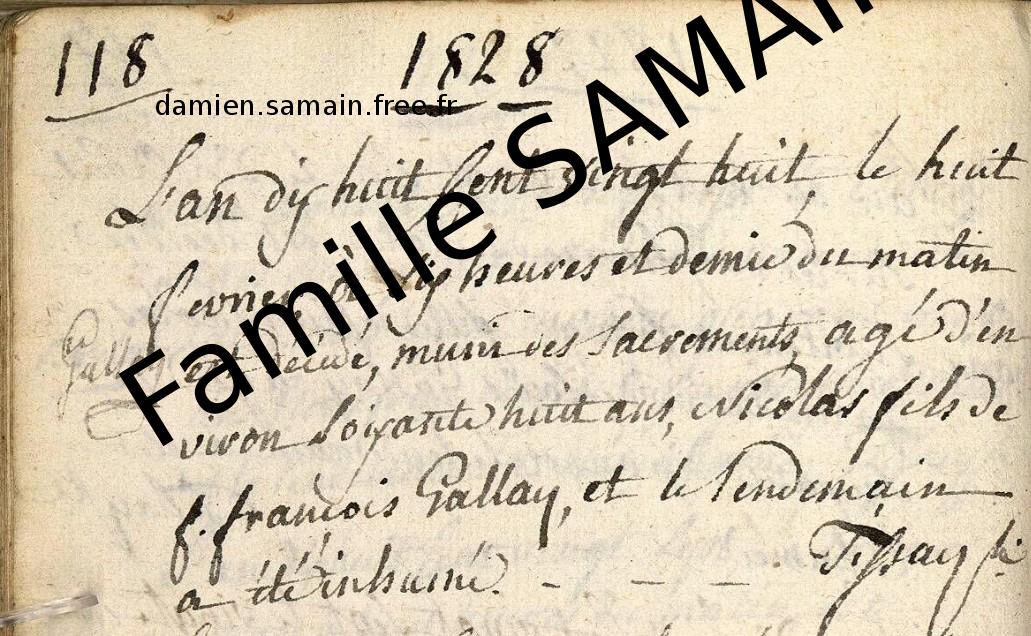 118 1828
damien.samain.free.fr
Famille SAMAIN
L'an dix huit Cent vingt huit, le huit
fevrier, à dix heures et demie du matin
Gallay est décédé, muni des Sacrements, agé d'en
viron Soixante huit ans, Nicolas fils de
f. françois Gallay, et le lendemain
a été inhumé. - - - . Tissay